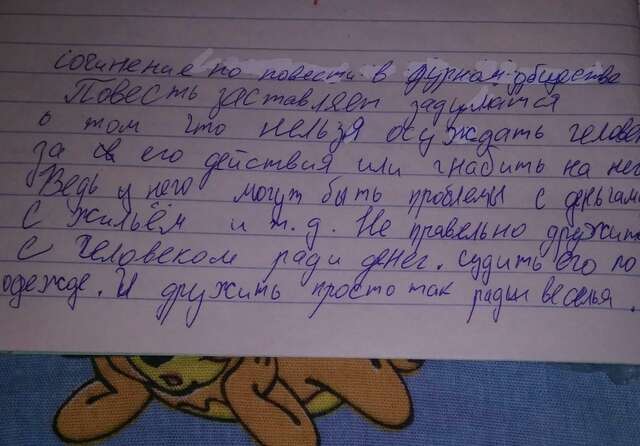 сочинение по повести в дурном обществе
Повесть заставляет задуматся
о том что нельзя осуждать человек
за его действия или гнабить на нег
Ведь у него могут быть проблемы с деньгами
с жильём и т.д. Не правельно дружит
с человеком ради денег. судить его по
одежде. И дружить просто так ради веселья.